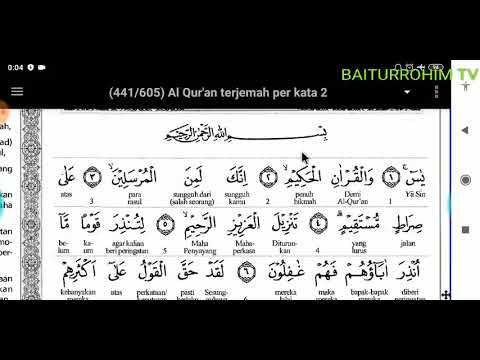 0:04
BAITURROHIM TV
(441/605) Al Qur'an terjemah per kata 2
بِسْمِ اللّٰهِ الرَّحْمٰنِ الرَّحِيْمِ
يٰسۤ ۚ ١ وَالْقُرْاٰنِ الْحَكِيْمِ ۙ ٢ اِنَّكَ لَمِنَ الْمُرْسَلِيْنَ ۙ ٣ عَلٰى
Yā Sīn 1 Demi Al-Qur'an penuh hikmah 2 sungguh kamu sungguh dari (salah seorang) para rasul 3 atas
صِرَاطٍ مُّسْتَقِيْمٍ ۗ ٤ تَنْزِيْلَ الْعَزِيْزِ الرَّحِيْمِ ۙ ٥ لِتُنْذِرَ قَوْمًا مَّآ
jalan yang lurus 4 Diturun- kan Maha- perkasa Maha Penyayang 5 agar kalian beri peringatan kaum be- lum
اُنْذِرَ اٰبَاۤؤُهُمْ فَهُمْ غٰفِلُوْنَ ٦ لَقَدْ حَقَّ الْقَوْلُ عَلٰٓى اَكْثَرِهِمْ
diberi bapak-bapak maka mereka 6 Sesung- pasti perkataan/ atas kebanyakan